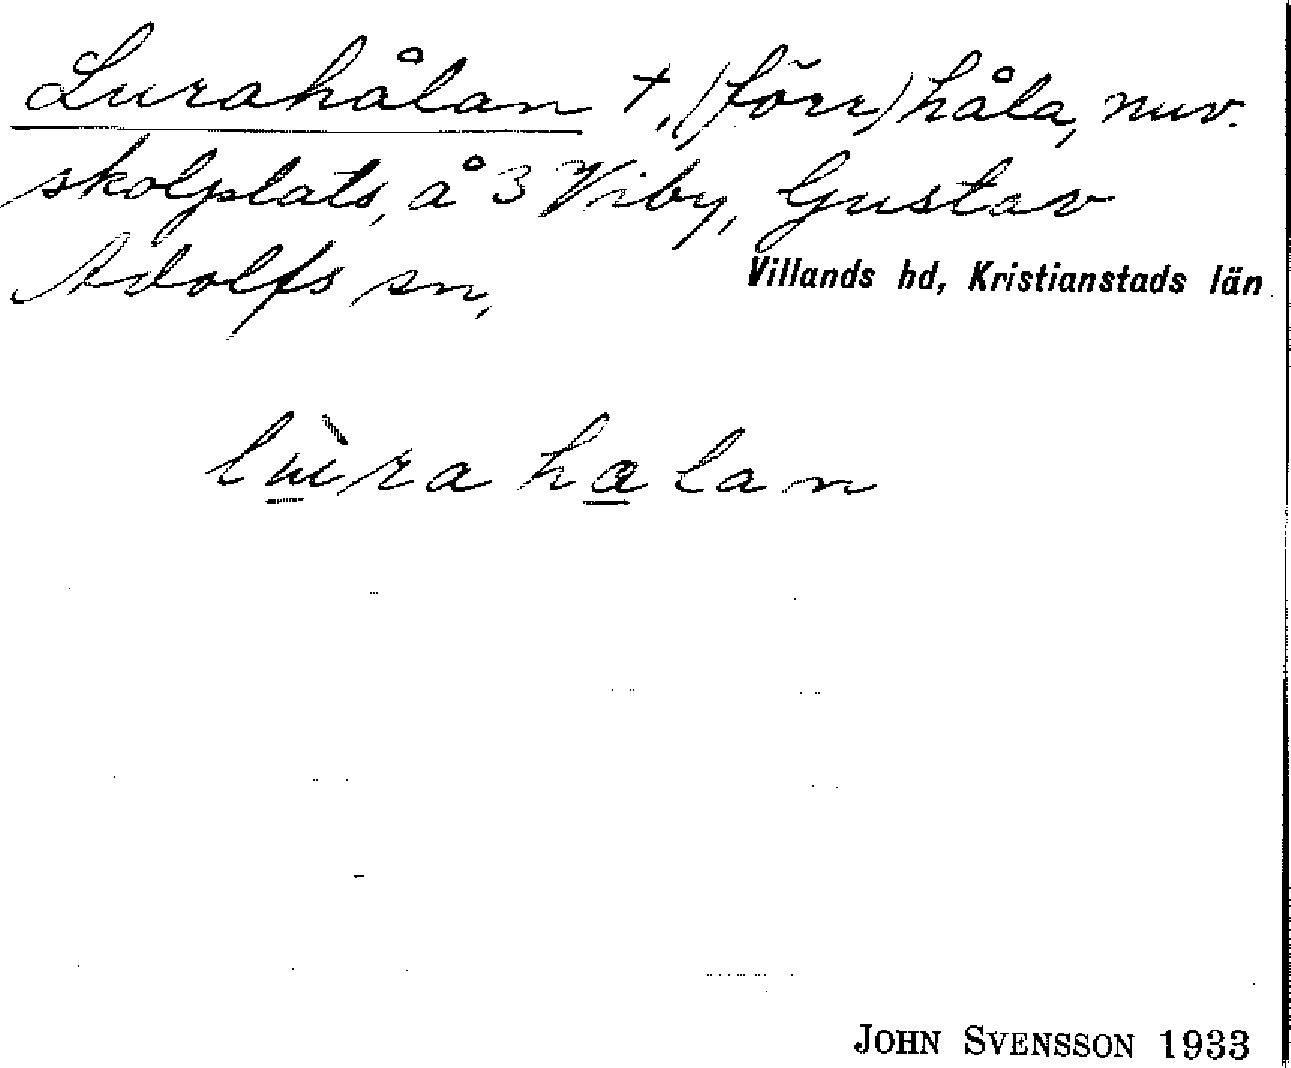 Lurahålan †, (förr) håla, nuv.
skolplats, å 3 Viby, Gustav
Adolfs sn, Villands hd, Kristianstads län
JOHN SVENSSON 1933